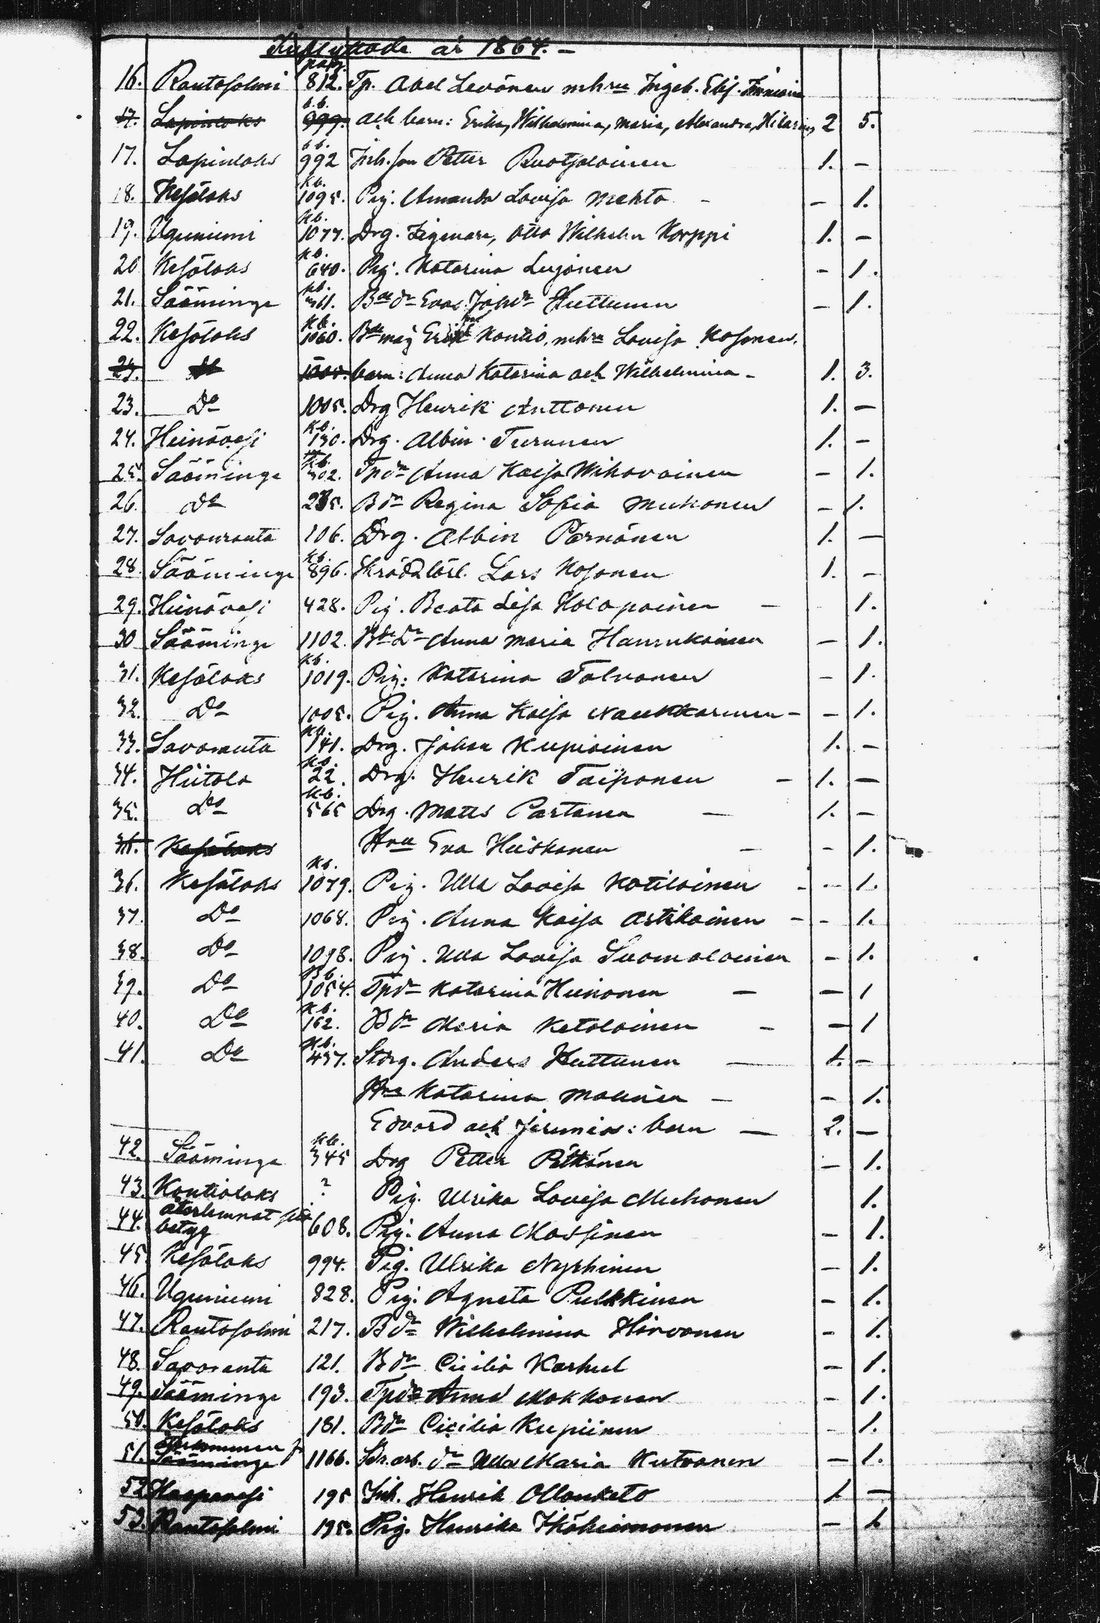 Inflyttade år 1864. —
pag.
16. Rantasalmi 812. Tp. Abel Levänen m. hru Ingeb. Elis.
17. Lapinlaks 999. och barn: Erika, Wilhelmina, Maria, Alexandra, Hilarius 2 5.
17. Lapinlaks 992 Inh. son Petter Ruotsalainen 1. —
18. Kesälaks 1095. Pig. Amanda Lovisa Mehto — 1.
19. Uguniemi 1077. Drg. Zigenare, Otto Wilhelm Korppi 1. —
20. Kesälaks 640. Pig. Katarina — 1.
21. Sääminge 311. Bde dr Huttunen — 1.
22. Kesälaks 1060. Bde måg Erik Kontio, m. hru Lovisa Kosonen.
23. Do barn: Anna Katarina och Wilhelmina — 1. 3.
23. Do 1005. Drg Henrik Anttonen 1. —
24. Heinävesi 130. Drg. Albin Turunen 1. —
25. Sääminge 302. Tpdr Anna Kaisa Wihavainen — 1.
26. Do Bdr Regina Sofia Muhonen — 1.
27. Savonranta 106. Drg. Albin Pärnänen 1. —
28. Sääminge 896. Skräddlärl. Lars Kosonen 1. —
29. Heinävesi 428. Pig. Beata Lisa Holopainen — 1.
30 Sääminge 1102. Bde Dr Anna Maria Hannukainen — 1.
31. Kesälaks 1019. Pig. Katarina Tolvanen — 1.
32. Do 1005. Pig. Anna Kaisa Naukkarinen — — 1.
33. Savoranta 141. Drg. Johan Kupiainen 1. —
34. Hiitola 22. Drg. Henrik Taiponen — 1. —
35. Do 565 Drg. Matts Partanen — 1. —
36. Kesälaks Hru Eva Heiskanen — 1.
36. Kesälaks 1079. Pig. Ulla Lovisa Kotilainen — 1.
37. Do 1068. Pig. Anna Kaisa Artikainen — — 1.
38. Do 1098. Pig. Ulla Lovisa Suomalainen — 1.
39. Do 1054. Tpdr Katarina Heinonen — — 1
40. Do 162. Bdr Maria Ketolainen — — 1
41. Do 437. Storg. Anders Huttunen — 1. —
Hru Katarina Malinen — — 1.
Edvard och Jeremias: barn — 2. —
42. Sääminge 345 Drg Petter Pitkänen — 1.
43. Kontiolaks ? Pig. Ulrika Lovisa Muhonen 1.
44. återlemnat sitt betyg 608. Pig. Anna Massinen — 1.
45. Kesälaks 994. Pig. Ulrika Nyrhinen — 1.
46. Uguniemi 828. Pig. Agneta Pulkkinen — 1.
47. Rantasalmi 217. Bdr Wilhelmina Hirvonen — 1.
48. Savoranta 121. Bdr Cicilia Karhul — 1.
49. Sääminge 193. Tpdr Anna Makkonen — 1.
50. Kesälaks 181. Bdr Cicilia Kupiinen — 1.
51. Sääminge 1166. arb. dr Ulla Maria Kutvonen — 1.
52 Haapavesi 195 Inh. Henrik Ollanketo 1 —
53. Rantasalmi 195. Pig. Henrika — 1.